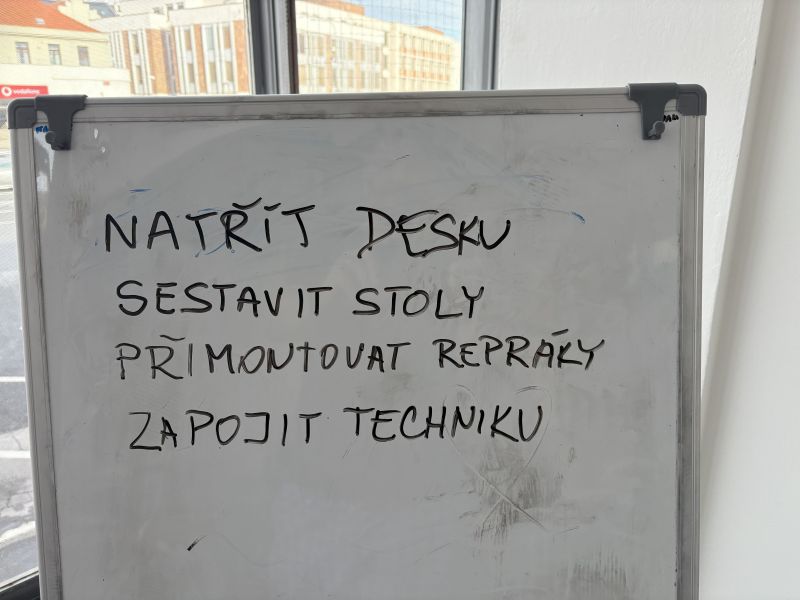 vodafone
NATŘÍT DESKU
SESTAVIT STOLY
PŘIMONTOVAT REPRÁKY
ZAPOJIT TECHNIKU